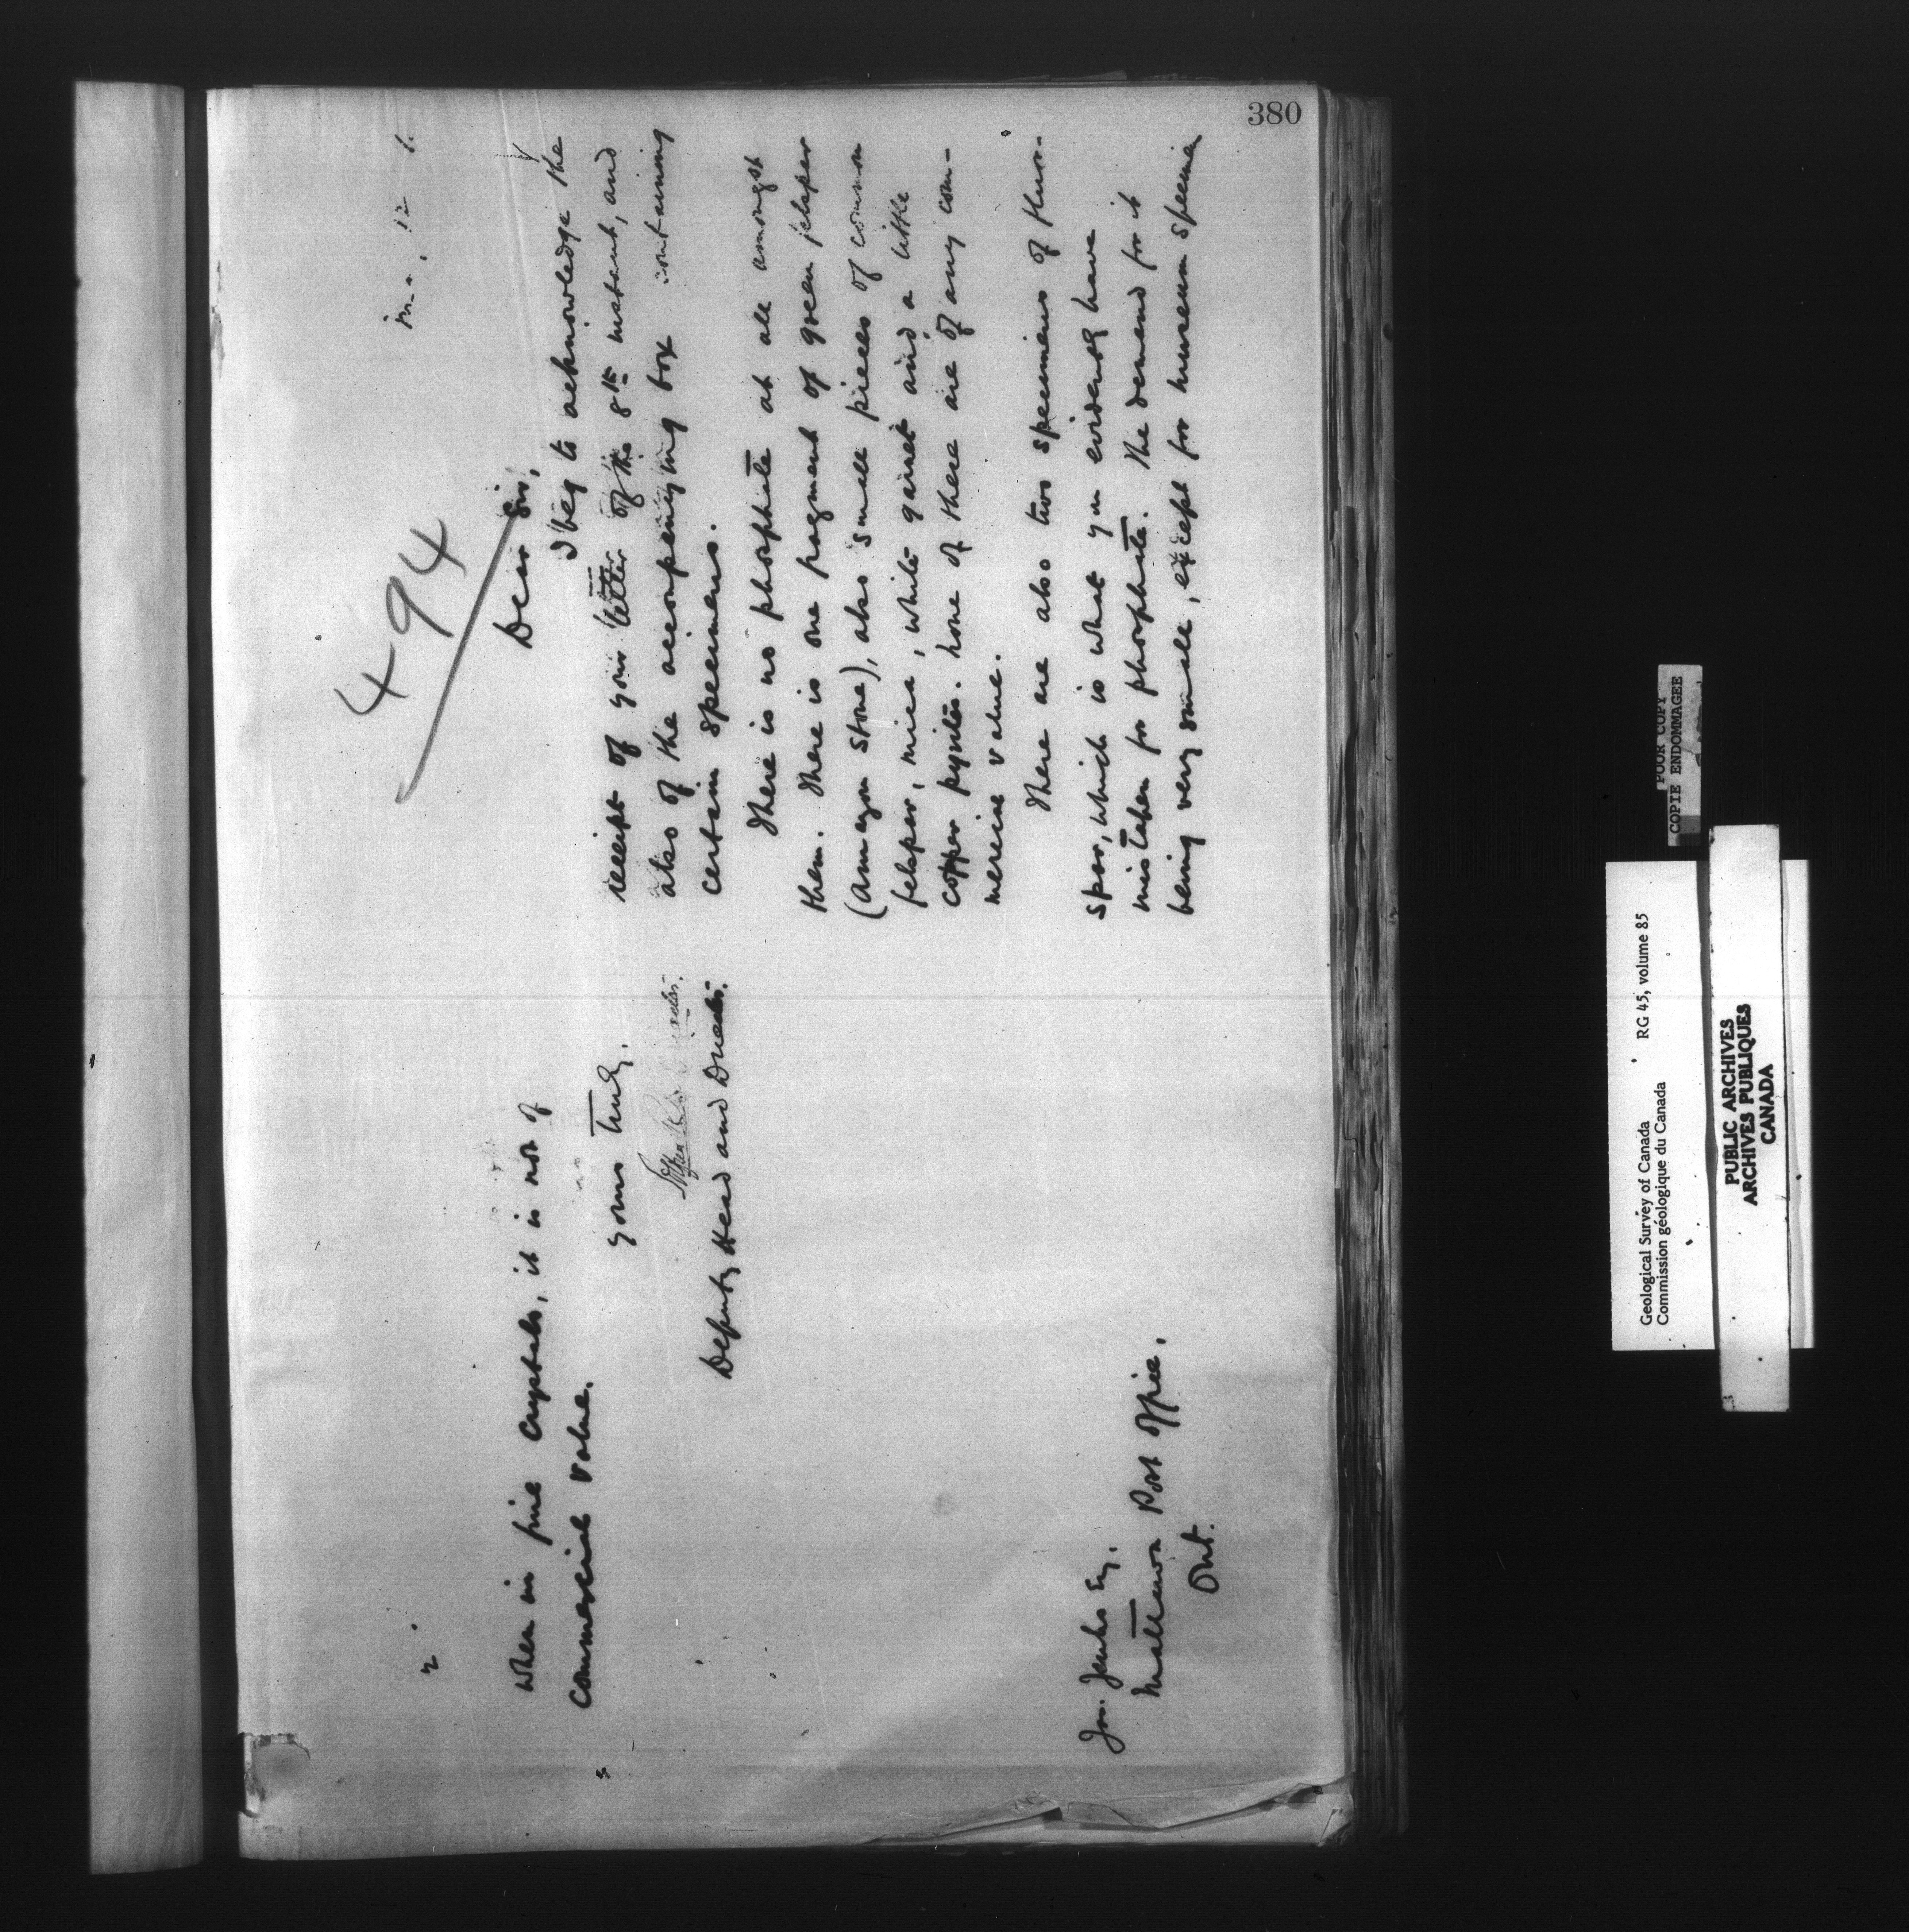 380
494
Dear Sir,
I beg to acknowledge the
receipt of your letter of the 8th instant, and
also of the accompanying box containing
certain specimens.
There is no phosphate at all amongst
them. There is one fragment of green felspar
(Amazon stone), also small pieces of common
felspar, mica, white garnet and a little
copper pyrites. None of these are of any com-
mercial value.
There are also two specimens of fluor-
spar, which is what you evidently have
mistaken for phosphate. The demand for it
being very small, except for museum specimen
2.
when in fine crystals, it is not of
commercial value.
Yours truly,
Deputy Head and Director.
Jno. Jenks Esq.
Mattawa Post Office.
Ont.
POOR COPY
COPIE ENDOMMAGEE
Geological Survey of Canada
RG 45, volume 85
Commission géologique du Canada
PUBLIC ARCHIVES
ARCHIVES PUBLIQUES
CANADA